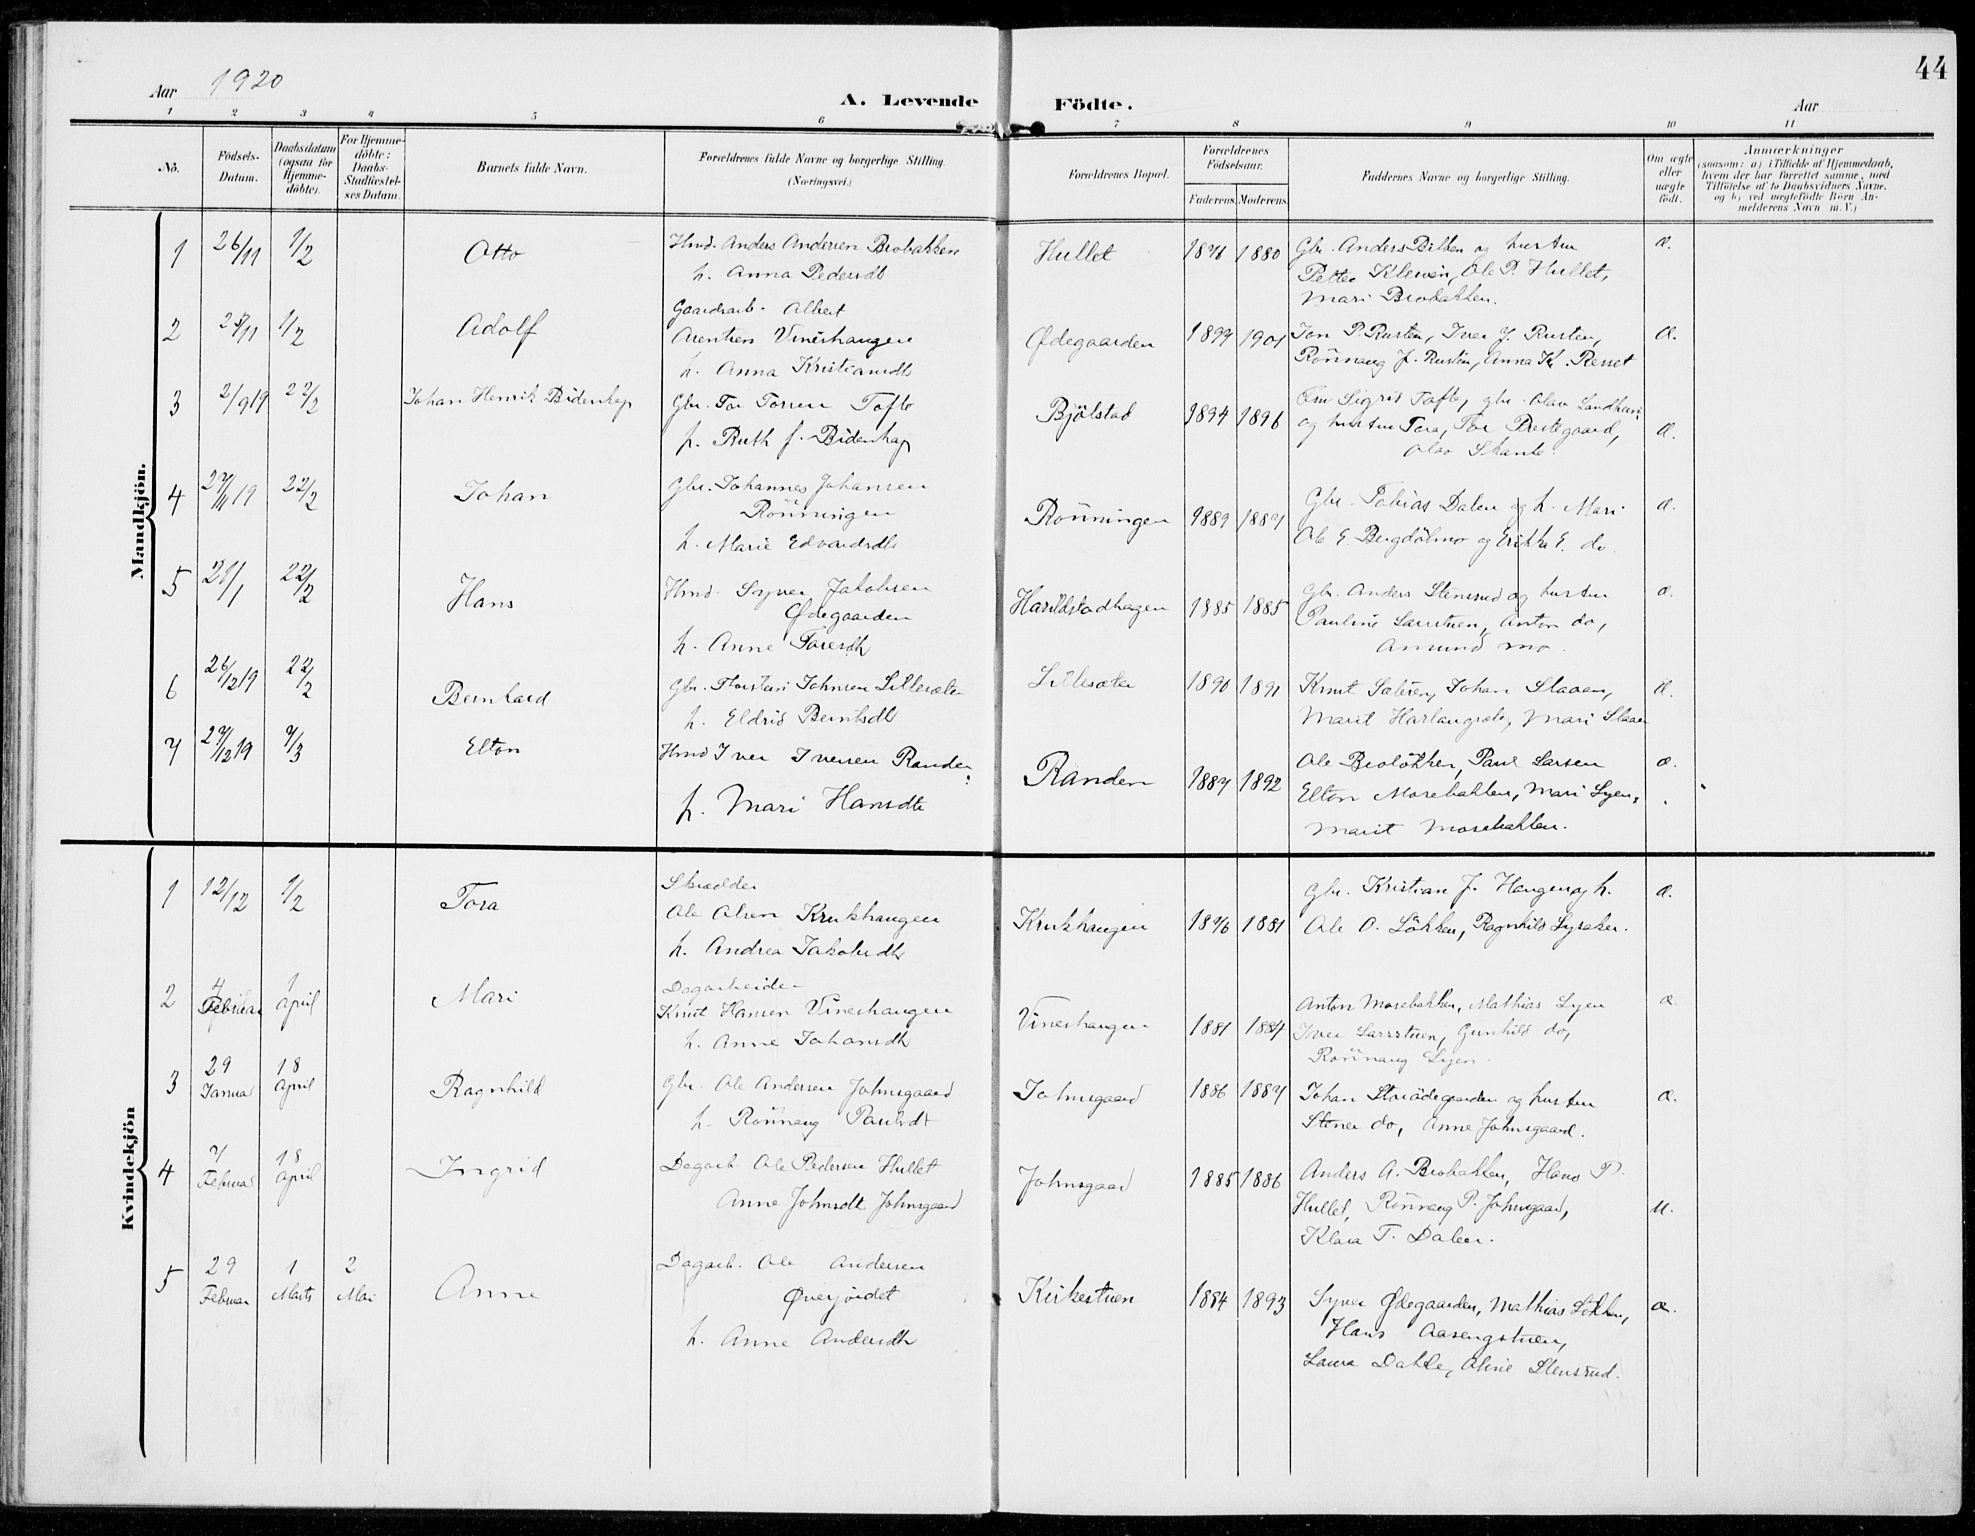 44
Aar 1920
A. Levende Födte.
Aar
1 2 3 4 5 6 7 8 9 10 11
No.
Födsels-
Datum.
Daabsdatum
(ogsaa for
Hjemme-
döbte).
For Hjemme-
döbte:
Daabs-
Stadfæstel-
ses Datum.
Barnets fulde Navn.
Forældrenes fulde Navne og borgerlige Stilling.
(Næringsvei.)
Forældrenes Bopæl.
Forældrenes
Födselsaar.
Faderens. Moderens.
Faddernes Navne og borgerlige Stilling.
Om ægte
eller
uægte
født.
Anmærkninger
(saasom: a) i Tilfælde af Hjemmedaab,
hvem der har forrettet samme, med
Tilføielse af to Daabsvidners Navne,
og b) ved uægtefödte Börn An-
melderens Navn m.V.)
Mandkjön.
1 26/11 1/2 Otto
Hmd. Anders Andersen Brobakken
h. Anna Pedersdt
Hullet 1876 1880
Gbr. Anders Bilben og hustru
Petter Kleven, Ole P. Hullet,
Mari Brobakken.
Æ.
2 1/2 Adolf
Gaardarb. Albert
Arentsen Vineshaugen
h. Anna Kristiansdt
Ødegaarden 1899 1901
Jon P. Rusten, Iver J. Rusten,
Rönnaug J. Rusten, Anna K. Resset
Æ.
3 2/9 19 22/2 Johan Henrik Bidenkap
Gbr. Tor Torsen Tofte
h. Ruth J. Bidenkap
Bjölstad 1894 1896
Em Sigrid Tofte, gbr. Olav Sandbu
og hustru Tora, Tor Prestegaard,
Olav
Æ.
4 27/11 19 22/2 Johan
Gbr. Johannes Johansen
Rönningen
h. Marie Edvardsdt
Rönningen 1889 1887
Gbr. Tobias Dalen og h. Mari
Ole E. Bergdölmo og Erikke E. do.
Æ.
5 29/1 22/2 Hans
Hmd. Syver Jakobsen
Ødegaarden
h. Anne Toresdt
Harildstadhagen 1885 1885
Gbr. Anders Stensrud og hustru
Pauline Sarstuen, Anton do,
Amund Mo.
Æ.
6 26/12 19 22/2 Bernhard
Gbr. Thorstein Johnsen Lillesæter
h. Eldrid Berntsdt
Lillesæter 1890 1891
Knut Sæteren, Johan Slaaen,
Marit Harlaugsæter, Mari Slaaen
Æ.
7 27/12 19 7/3 Elton
Hmd Iver Iversen Randen
h. Mari Hansdt
Randen 1887 1892
Ole Brolökken, Paul Larsen
Elton Morebakken, Mari Lyen,
Marit Morebakken.
Æ.
Kvindekjön
1 12/12 1/2 Tora
Skrædder
Ole Olsen Krukhaugen
h. Andrea Jakobsdt
Krukhaugen 1876 1881
Gbr. Kristian J. Haugen og h.
Ole O. Lökken, Ragnhild Lysaker.
Æ.
2 4 Februar 1 April Mari
Dagarbeider
Knut Hansen Vineshaugen
h. Anne Johansdt
Vineshaugen 1881 1884
Anton Morebakken, Mathias Lyen
Iver Sarstuen, Gunhild do,
Rönnaug Lyen.
Æ.
3 29 Januar 18 April Ragnhild
Gbr. Ole Andersen Johnsgaard
h. Rönnaug Paulsdt
Johnsgaard 1886 1887
Johan Storödegaarden og hustru
Stener do, Anne Johnsgaard.
Æ.
4 7 Februar 18 April Ingrid
Dagarb. Ole Pedersen Hullet
Anne Johnsdt Johnsgaard
Johnsgaard 1885 1886
Anders A. Brobakken, Hans P.
Hullet, Rönnaug P. Johnsgaard,
Klara T. Dalen.
U.
5 29 Februar 1 Marts 2 Mai Anne
Dagarb. Ole Andersen
Øverjordet
h. Anne Andersdt
Kirkestuen 1884 1893
Syver Ødegaarden, Mathias Lökken,
Hans Aasengstuen,
Laura Dahle, Oline Stensrud.
Æ.